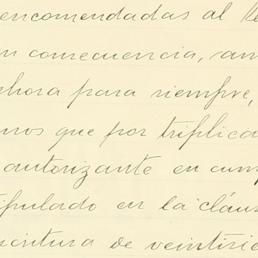 encomendadas al Re
n consecuencia, an
ahora para siempre,
mos que por triplica
autorizante en cump
tipulado en la cláus
scritura de veintisie